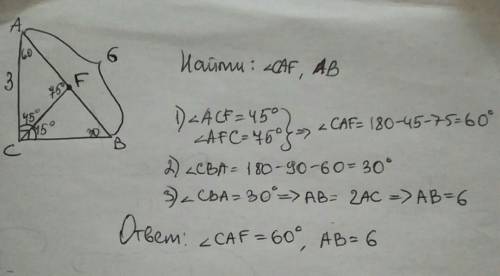 A
60
6
3
75° F
45°
45°
30
C
B
Найти: ∠CAF, AB
1) ∠ACF = 45°
∠AFC = 75° } => ∠CAF = 180-45-75=60°
2) ∠CBA = 180-90-60=30°
3) ∠CBA = 30° => AB = 2AC => AB = 6
Ответ: ∠CAF = 60°, AB = 6